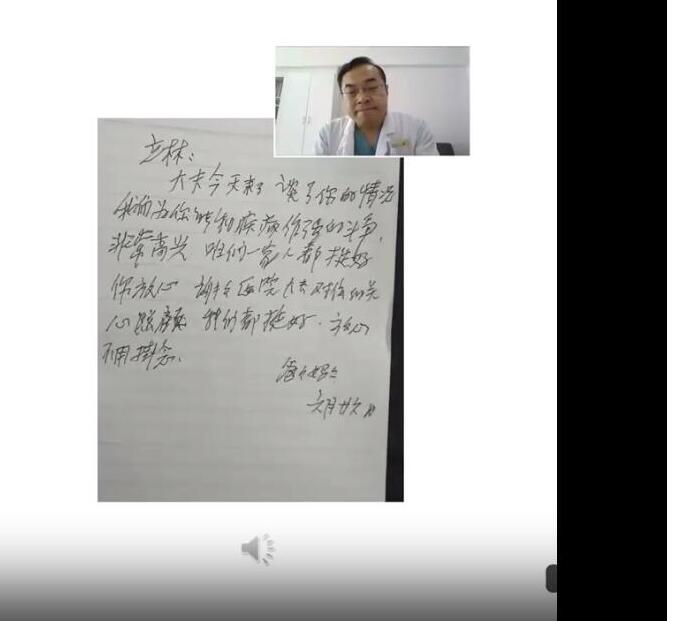 立林:
大夫今天来了 谈了你的情况
我们为你能和疾病作强的斗争,
非常高兴 咱们一家人都挺好
你放心 谢谢医院大夫对你的关
心照顾 我们都挺好. 放心
不用掛念.
爸爸妈妈
六月廿六日